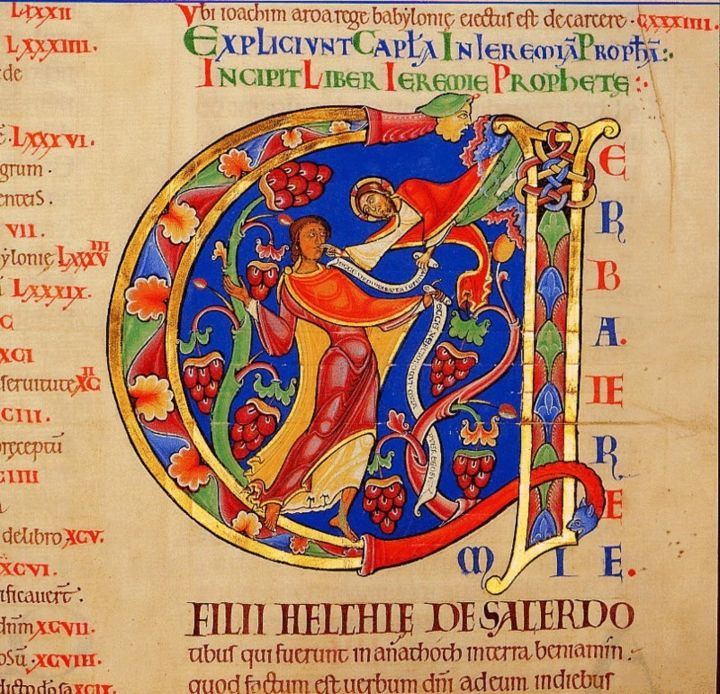 LXXXII
LXXXIIII.
de
LXXXVI.
grum.
VII.
bylonię LXXXVIII
LXXXIX.
C
XCI
seruitute XCII
CIII.
pręceptū
CIIII
delibro XCV.
XCVI.
ificauer̄t.
dn̄m XCVII.
osū. XCVIII.
XCIX.
Vbi ioachim aroarege babylonię eiectus est decarcere. CXXXIIII.
EXPLICIVNT CAPĪLA IN IEREMIĀ PROPHĀ:.
INCIPIT LIBER IEREMIE PROPHETE:.
VERBA. IEREMIE.
FILII HELCHIE DE SACERDO
tibus qui fuerunt in anathoth interra beniamin.
quod factum est uerbum dn̄i ad eum indiebus